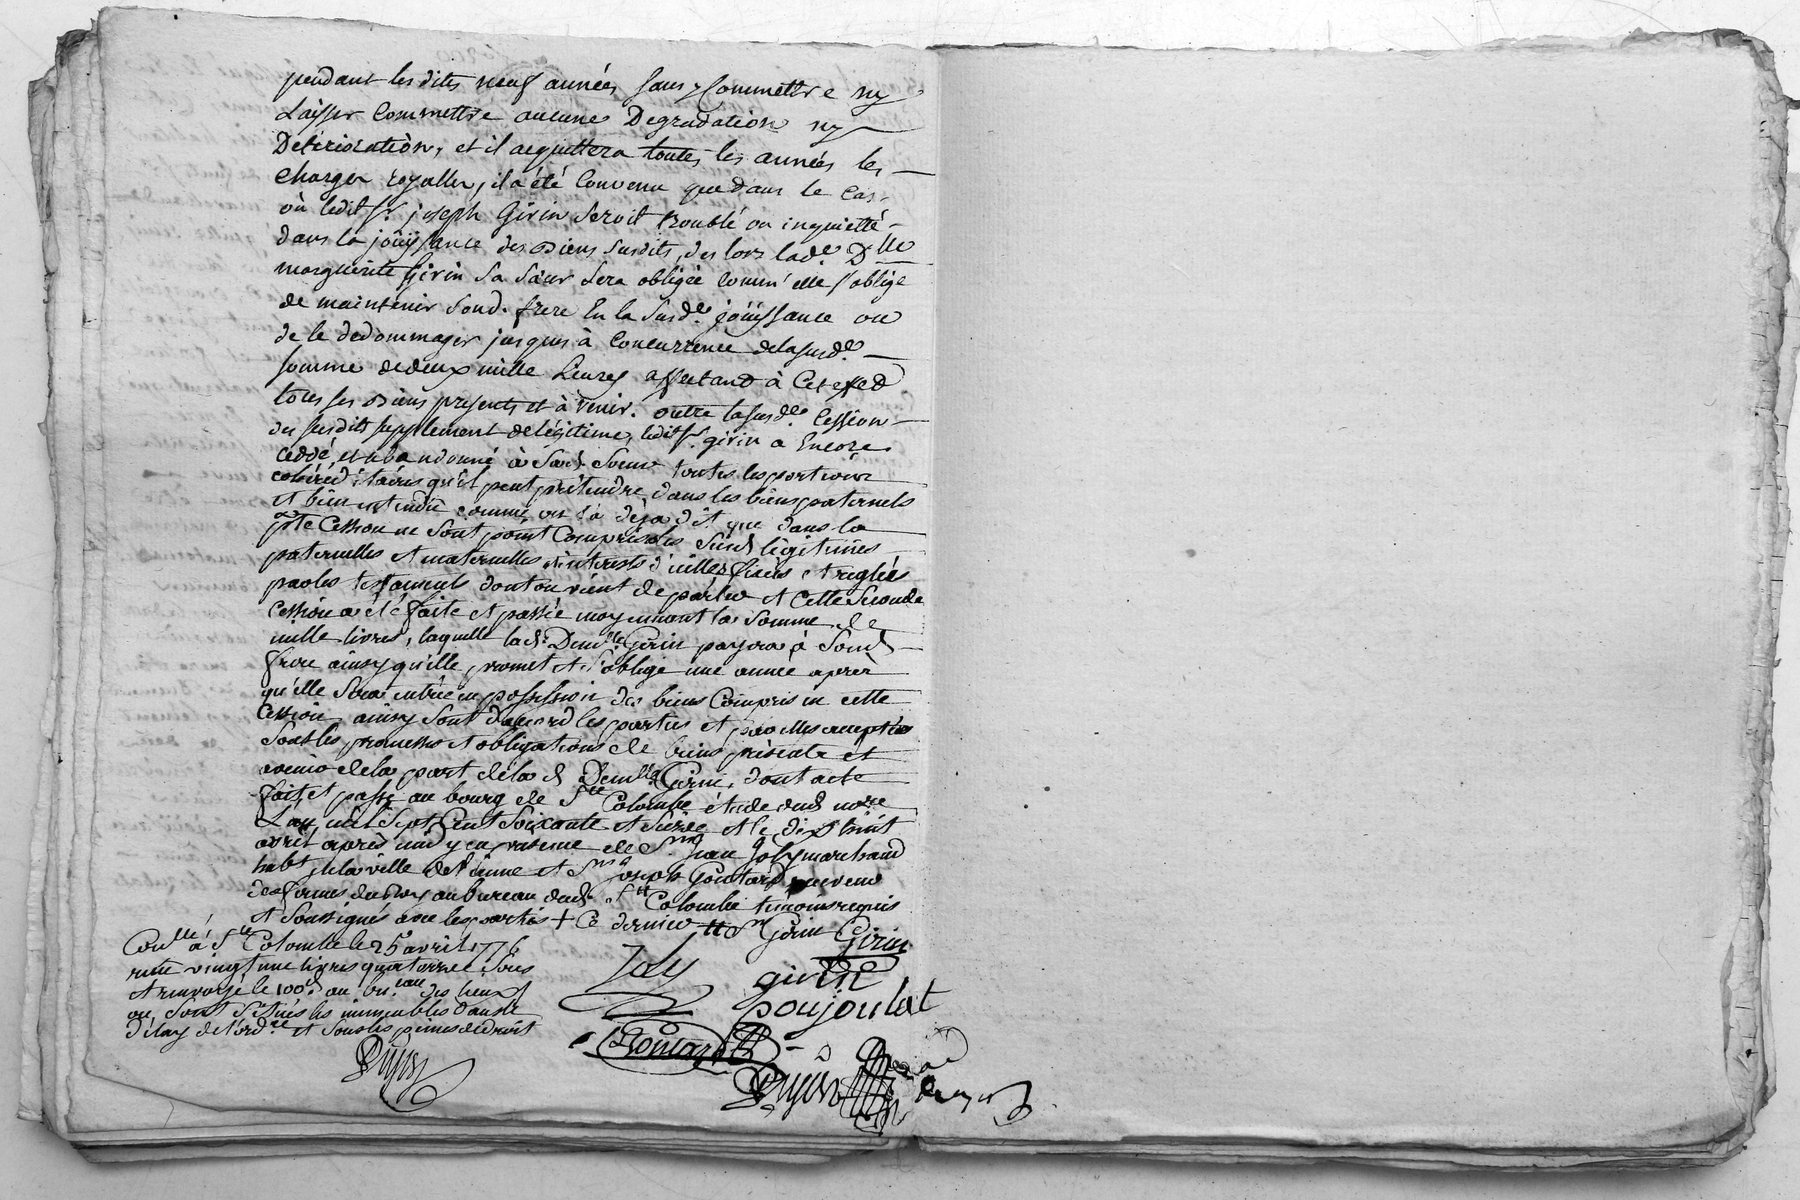 pendant les dites neuf années sans y Commettre ny
Laisser Commettre aucune Degradation ny
Deterioration, et il acquittera toutes les années les
charges royalles, il a été Convenu que dans le cas
où ledit Sr. joseph Girin seroit troublé ou inquietté
dans la joüissance des Biens susdits, des lors lade. Dlle
marguerite Girin sa sœur sera obligée Comm'elle s'oblige
de maintenir sond. frere En la susde. joüissance ou
de le dedommager jusques à Concurrence delasusde.
somme dedeux mille Livres affectand à Cet effed
tous ses Biens presents et à venir. outre lasusde. Cession
du susdit supplement delégitime, ledit Sr. girin a Encore
ceddé et abandonné à sad. soeur toutes les portions
cohéréditaires qu'il peut prétendre dans les biens paternels
et bien entendu comme on l'a déja dit que dans la
pnte Cession ne sont point Comprises les susd. légitimes
paternelles et maternelles interests d'icelles fixées et reglées
par les testaments dont on vient de parler et Cette seconde
Cession a été faite et passée moyennant la somme de
mille livres, laquelle lad. Demlle Girin payera à sond.
frere ainsy qu'elle promet et s'oblige une année apres
qu'elle sera entrée en possession des biens Compris en cette
Cession, ainsy sont d'accord les parties et par elles acceptées
sous les promesses et obligations de biens présents et
avenir de la part de la d. Demlle Girin, dont acte
fait et passé au bourg de Ste Colombe étude dud. nore
L'an mil sept Cent soixante et seize et le dix huit
avril après midy en presence de Sr jean Joly marchand
habt. de la ville de Vienne et Sr joseph Goutard receveur
des fermes du Roy au bureau dud. Ste Colombe temoins requis
et soussignés avec les parties + Ce dernier Sr Girin Girin
Conllé à Ste Colombe le 25 avril 1776
reçu vingt une livres quatorze sous
et renvoyé le 100e. au bureau des lieux
ou sont situés les immeubles dans le
délay de l'ordce et sous les peines de droit
Joly
girin
poujoulat
Goutard